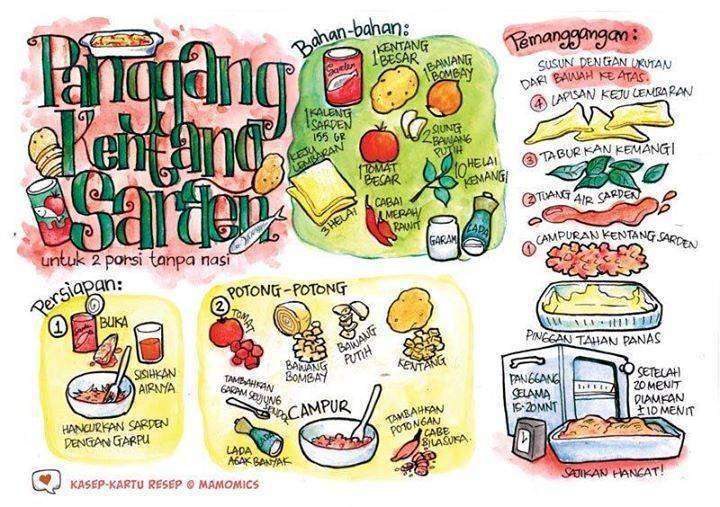 Panggang
Kentang
Sarden
untuk 2 porsi tanpa nasi
Bahan-bahan:
1 KALENG
SARDEN
155 GR
1 KENTANG
BESAR
1 BAWANG
BOMBAY
2 SIUNG
BAWANG
PUTIH
KEJU
LEMBARAN
3 HELAI
1 TOMAT
BESAR
10 HELAI
KEMANGI
CABAI
MERAH/
RAWIT
GARAM
LADA
Persiapan:
1
BUKA
SISIHKAN
AIRNYA
HANCURKAN SARDEN
DENGAN GARPU
2 POTONG-POTONG
TOMAT
BAWANG
BOMBAY
BAWANG
PUTIH
KENTANG
TAMBAHKAN
GARAM SEUJUNG
SENDOK
LADA
AGAK BANYAK
CAMPUR
TAMBAHKAN
POTONGAN
CABE
BILA SUKA.
Pemanggangan:
SUSUN DENGAN URUTAN
DARI BAWAH KE ATAS.
4 LAPISAN KEJU LEMBARAN
3 TABURKAN KEMANGI
2 TUANG AIR SARDEN
1 CAMPURAN KENTANG SARDEN
PINGGAN TAHAN PANAS
PANGGANG
SELAMA
15-20 MNT
SETELAH
20 MENIT
DIAMKAN
±10 MENIT
SAJIKAN HANGAT!
KASEP-KARTU RESEP © MAMOMICS